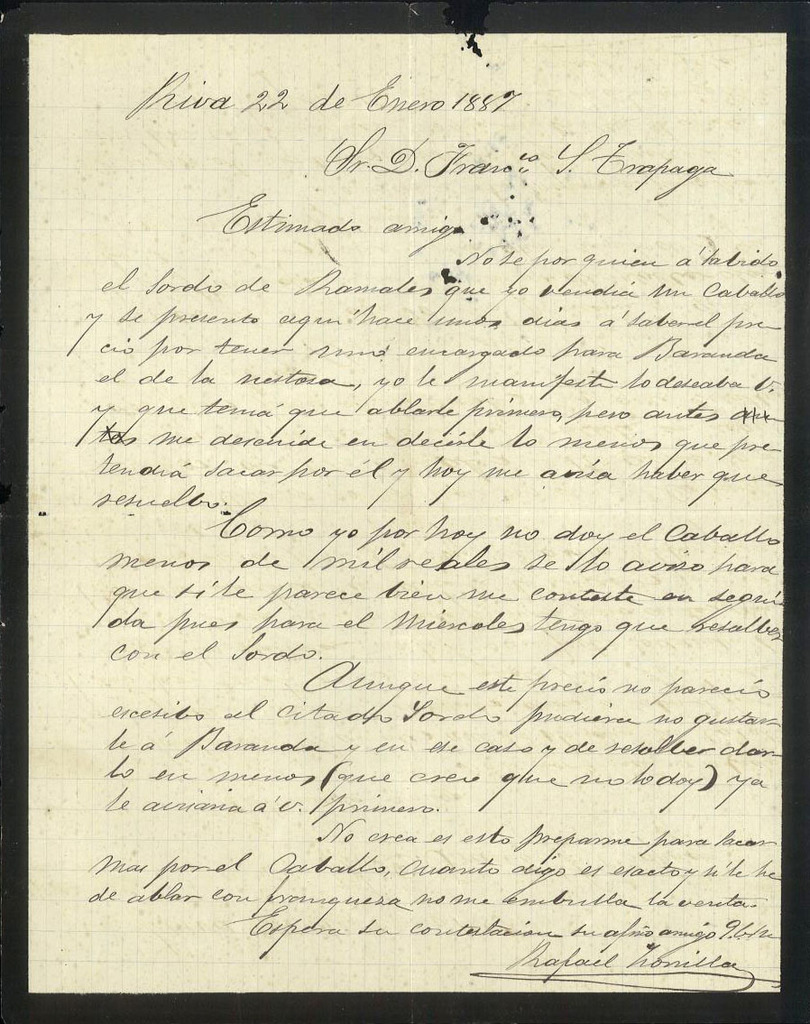 Riva 22 de Enero 1887
Sr. D. Franco S. Trapaga
Estimado amigo
No se por quien á sabido
el Sordo de Ramales que yo vendia un Caballo
y se presento aqui hace unos dias á saber el pre
cio por tener uno encargado para Baranda
el de la nestosa, yo le manifeste lo deseaba V.
y que tenia que ablarle primero, pero antes
me descuide en decirle lo menos que pre
tendia sacar por él y hoy me avisa haber que
resuelbo.
Como yo por hoy no doy el Caballo
menos de mil reales se lo aviso para
que si le parece bien me conteste en segui
da pues para el Miercoles tengo que resolber
con el Sordo.
Aunque este precio no parecio
escesibo al citado Sordo pudiera no gustar
le á Baranda y en ese caso y de resolber dar
lo en menos (que creo que no lo doy) ya
le avisaria á V. primero.
No crea es esto preparme para sacar
mas por el Caballo, cuanto digo es esacto y si le he
de ablar con franqueza no me embulla la venta.
Espera su contestacion su afmo amigo
Rafael Zorrilla